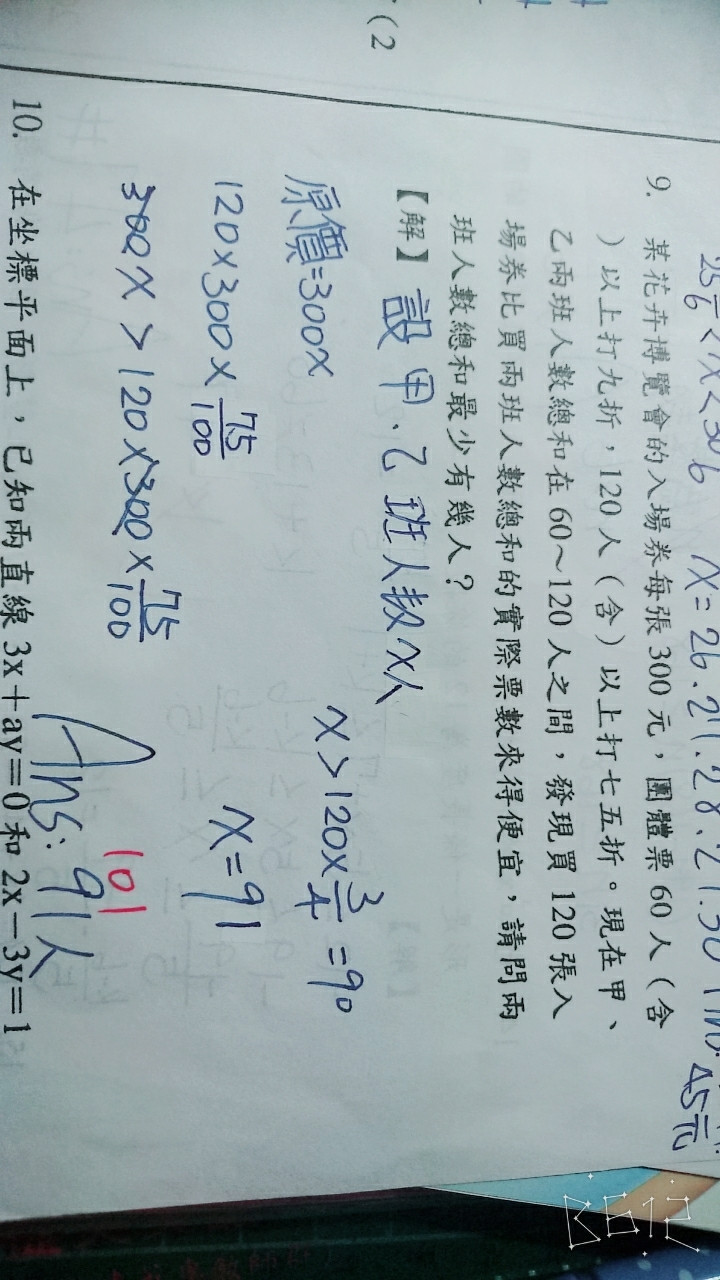 (2
25/6 < x < 30 6 x = 26.27.28.29.30
45元
9. 某花卉博覽會的入場券每張 300 元，團體票 60 人（含
）以上打九折，120 人（含）以上打七五折。現在甲、
乙兩班人數總和在 60～120 人之間，發現買 120 張入
場券比買兩班人數總和的實際票數來得便宜，請問兩
班人數總和最少有幾人？
【解】設甲、乙班人數x人
原價=300x
120×300×75/100
300x > 120×300×75/100
x > 120×3/4 = 90
x = 91
101
Ans: 91人
10. 在坐標平面上，已知兩直線 3x＋ay＝0 和 2x－3y＝1
B612